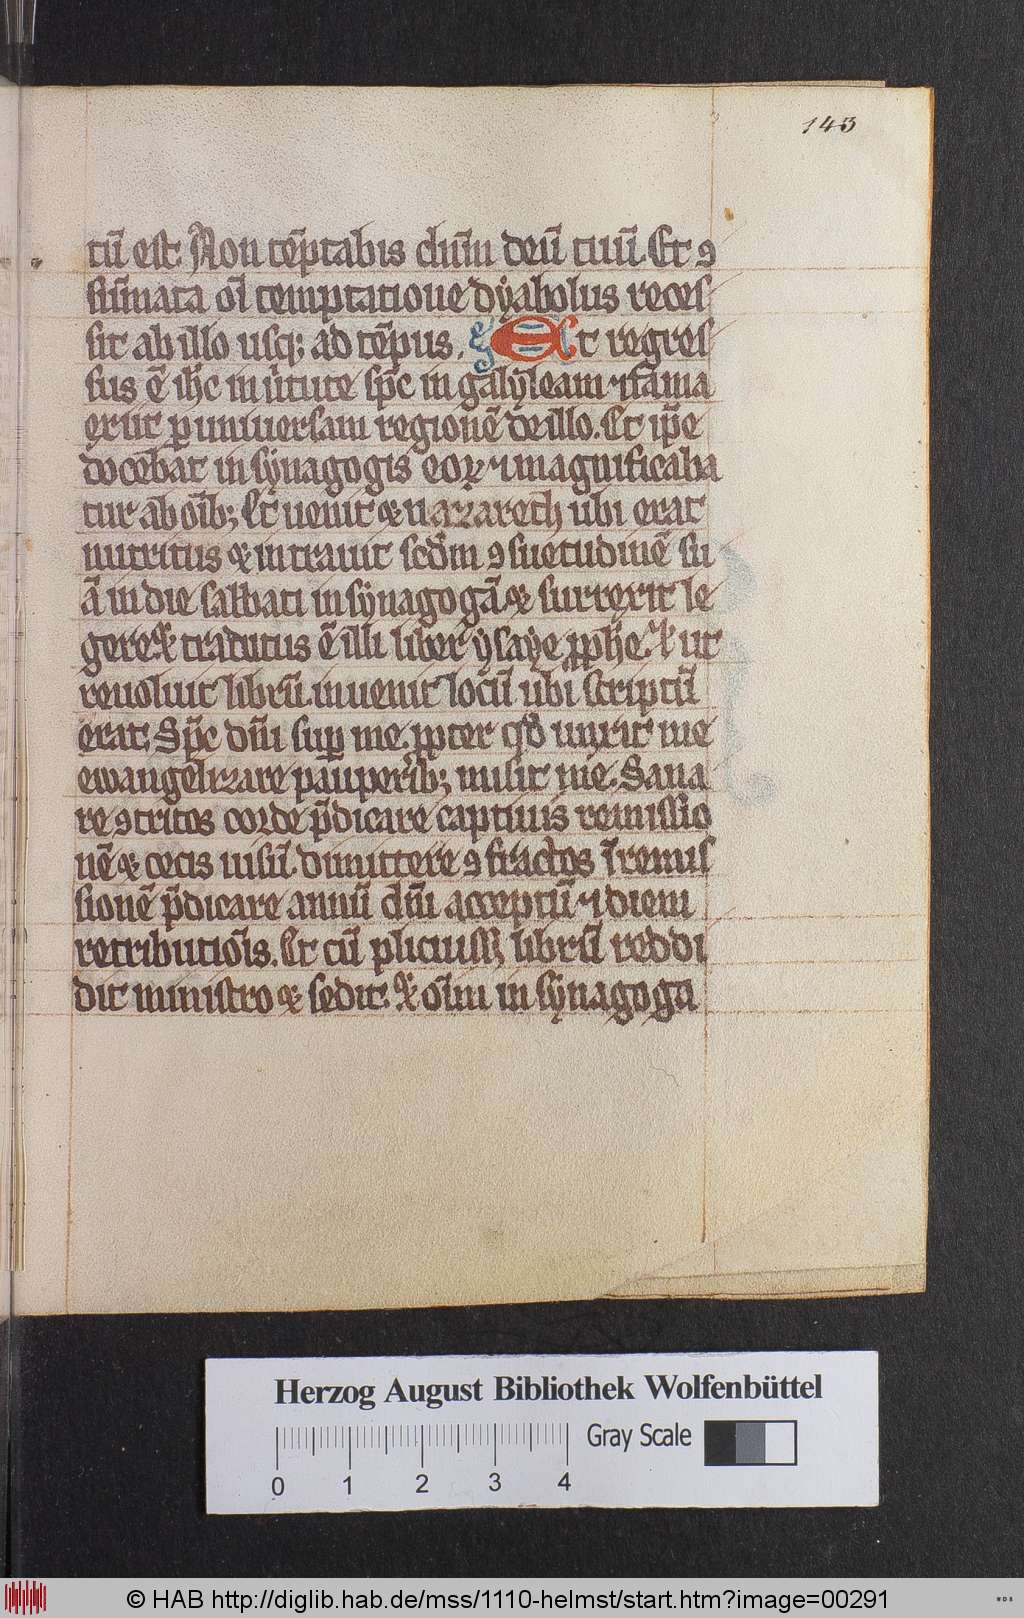 143
tū est. Non tēptabis dn̄m deū tuū. Et ꝯ
sūmata oī temptatione dẏabolus reces
sit ab illo usqꝫ ad tēpus. Et regres
sus ē ih̄c in ùtute sp̄c in galẏleam ⁊ fama
exiit ꝑ uniuersam regionē de illo. Et ip̄e
docebat in sẏnagogis eoꝝ ⁊ magnificaba
tur ab oīb; Et uenit & nazareth ubi erat
nutritus & intrauit scd̄m ꝯsuetudinē su
ā in die sabbati in sẏnagogā & surrexit le
gere. & traditus ē illi liber ẏsaẏe ꝓph̄e. & ut
reuoluit librū. inuenit locū ubi scriptū
erat. Sp̄c dn̄i suꝑ me. ꝓpter qđ unxit me
ewangelizare pauperib; misit me. Sana
re ꝯtritos corde p̄dicare captiuis remissio
nē & cecis uisū. dimittere ꝯfractos ī remis
sionē p̄dicare annū dn̄i acceptū ⁊ diem
retributiōis. Et cū plicuiss; librū reddi
dit ministro & sedit. & oīm in sẏnagoga
Herzog August Bibliothek Wolfenbüttel
Gray Scale
0 1 2 3 4
© HAB http://diglib.hab.de/mss/1110-helmst/start.htm?image=00291